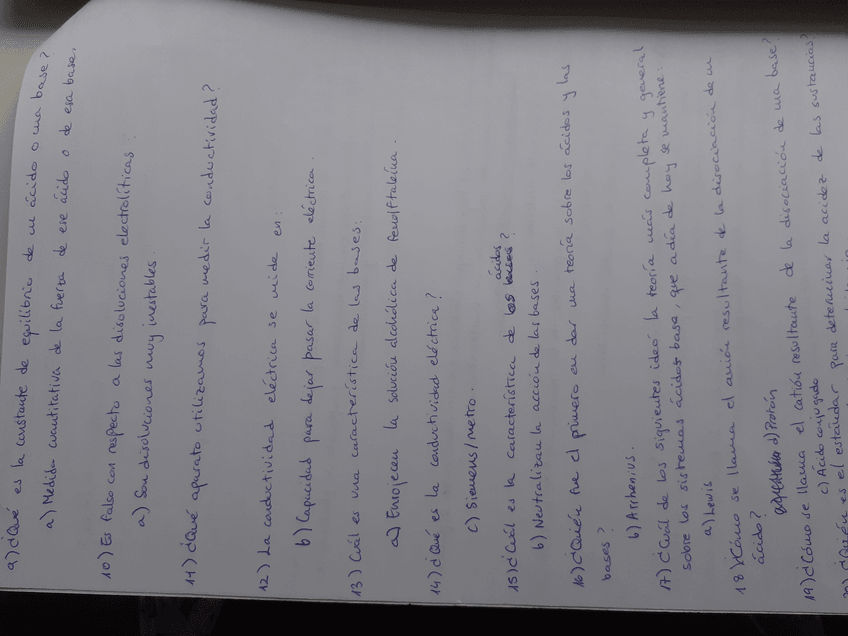 9) ¿Qué es la constante de equilibrio de un ácido o una base?
a) Medida cuantitativa de la fuerza de ese ácido o de esa base.
10) Es falso con respecto a las disoluciones electrolíticas:
a) Son disoluciones muy inestables.
11) ¿Qué aparato utilizamos para medir la conductividad?
12) La conductividad eléctrica se mide en:
b) Capacidad para dejar pasar la corriente eléctrica.
13) Cuál es una característica de las bases:
a) Enrojecen la solución alcohólica de fenolftaleína.
14) ¿Qué es la conductividad eléctrica?
c) Siemens/metro.
15) ¿Cuál es la característica de los ácidos?
b) Neutralizan la acción de las bases.
16) ¿Quién fue el primero en dar una teoría sobre los ácidos y las
bases?
b) Arrhenius.
17) ¿Cuál de los siguientes ideó la teoría más completa y general
sobre los sistemas ácidos base, que a día de hoy se mantiene:
a) Lewis
18) ¿Cómo se llama el anión resultante de la disociación de un
ácido? d) Protón
19) ¿Cómo se llama el catión resultante de la disociación de una base?
c) Ácido conjugado
20) ¿Quién es el estándar para determinar la acidez de las sustancias?